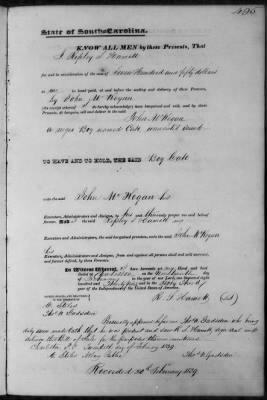 State of South Carolina.
KNOW ALL MEN by these Presents, That
I Ripley S Hamett
for and in consideration of the sum of Seven Hundred and fifty dollars
to me in hand paid, at and before the sealing and delivery of these Presents,
by John McHogan
(the receipt whereof do hereby acknowledge) have bargained and sold, and by these
Presents, do bargain, sell and deliver to the said
John McHogan
a negro Boy named Cato warranted sound
TO HAVE AND TO HOLD, THE SAID Boy Cato
unto the said John McHogan his
Executors, Administrators and Assigns, to his and their only proper use and behoof
forever. And I the said Ripley S Hamett my
Executors and Administrators, the said bargained premises, unto the said John McHogan
his
Executors, Administrators and Assigns, from and against all persons shall and will warrant,
and forever defend, by these Presents.
In Witness Whereof, I have hereunto set my Hand and Seal
Dated at Charleston on the Twentieth day
of February in the year of our Lord one thousand eight
hundred and thirty nine and in the Sixty third
year of the Independence of the United States of America.
R. S. Hamett
Thos W Gadsden
Personally appeared before me Thos W Gadsden who being
duly sworn made oath that he was present and saw R S Hamett sign seal and
deliver this Bill of Sale for the purposes therein mentioned
Charleston Twentieth day of February 1839
Thos W Gadsden
Recorded 20th February 1839